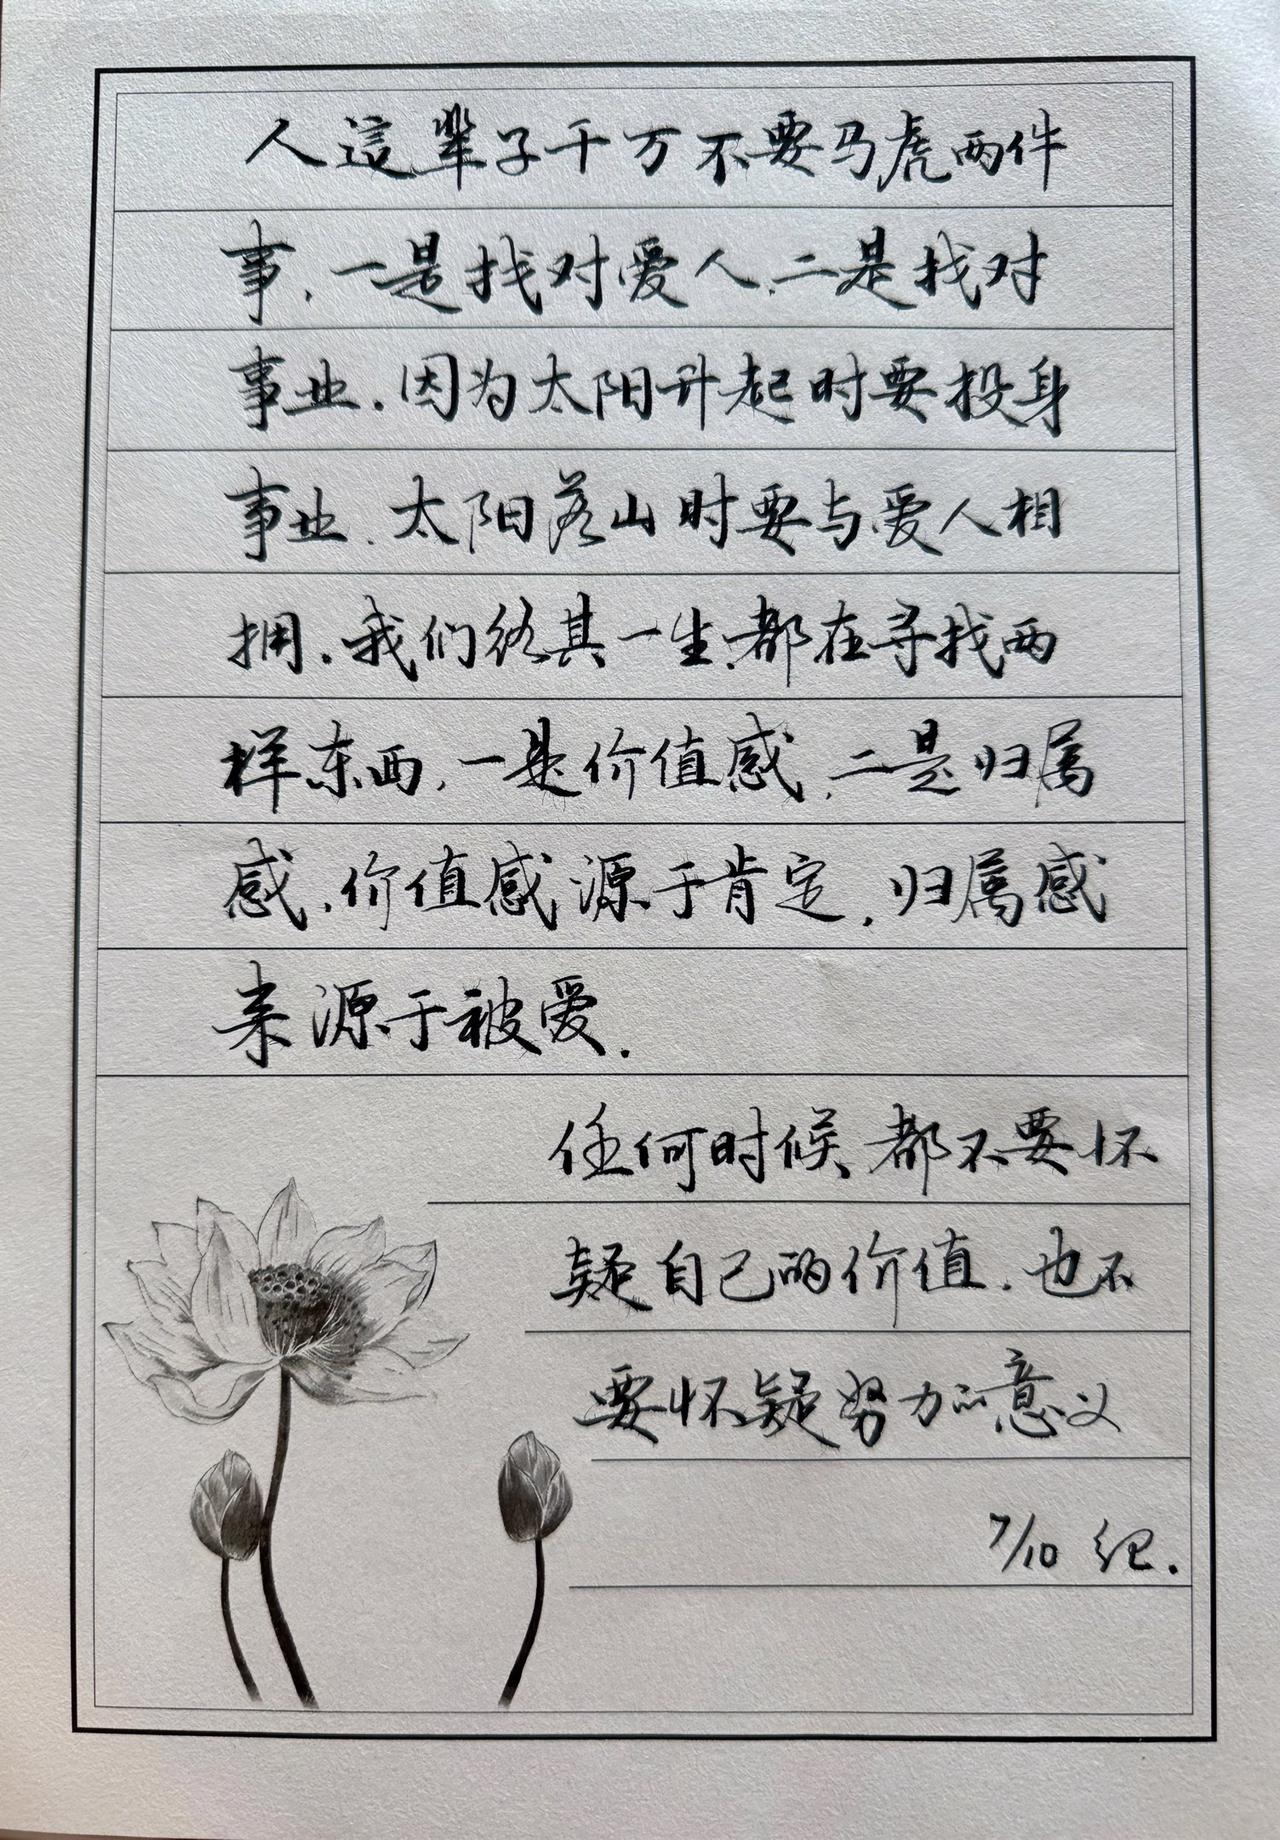 人這辈子千万不要马虎两件
事,一是找对爱人,二是找对
事业.因为太阳升起时要投身
事业,太阳落山时要与爱人相
拥.我们终其一生,都在寻找两
样东西,一是价值感,二是归属
感,价值感源于肯定,归属感
来源于被爱.
任何时候,都不要怀
疑自己的价值.也不
要怀疑努力的意义
7/10 纪.